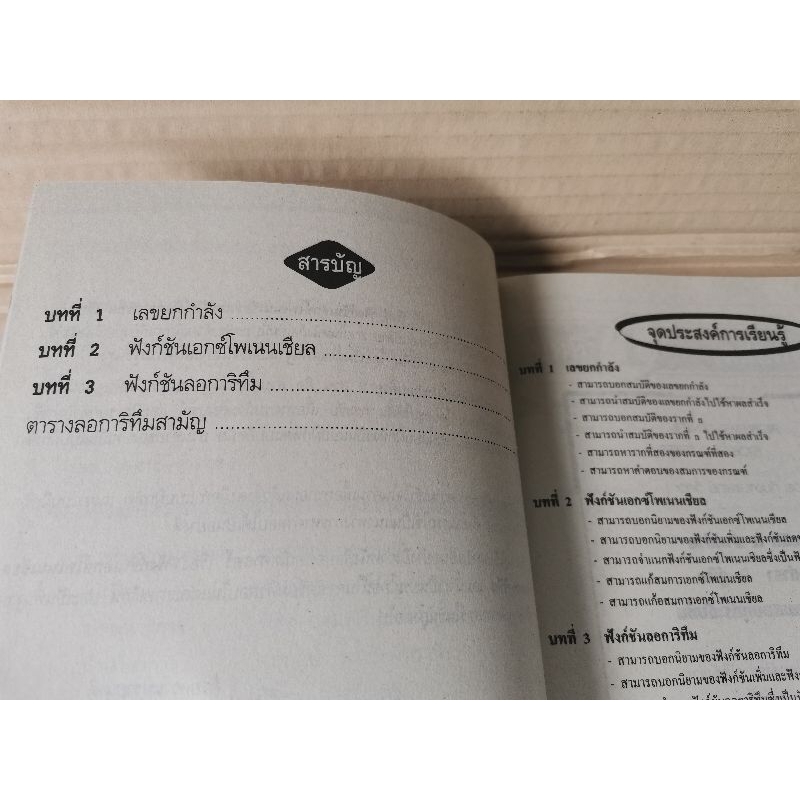 สารบัญ
บทที่ 1 เลขยกกำลัง
บทที่ 2 ฟังก์ชันเอกซ์โพเนนเชียล
บทที่ 3 ฟังก์ชันลอการิทึม
ตารางลอการิทึมสามัญ
จุดประสงค์การเรียนรู้
บทที่ 1 เลขยกกำลัง
- สามารถบอกสมบัติของเลขยกกำลัง
- สามารถนำสมบัติของเลขยกกำลังไปใช้หาผลสำเร็จ
- สามารถบอกสมบัติของรากที่ n
- สามารถนำสมบัติของรากที่ n ไปใช้หาผลสำเร็จ
- สามารถหารากที่สองของกรณฑ์ที่สอง
- สามารถหาคำตอบของสมการของกรณฑ์
บทที่ 2 ฟังก์ชันเอกซ์โพเนนเชียล
- สามารถบอกนิยามของฟังก์ชันเอกซ์โพเนนเชียล
- สามารถบอกนิยามของฟังก์ชันเพิ่มและฟังก์ชันลด
- สามารถจำแนกฟังก์ชันเอกซ์โพเนนเชียลซึ่งเป็นฟัง
- สามารถแก้สมการเอกซ์โพเนนเชียล
- สามารถแก้อสมการเอกซ์โพเนนเชียล
บทที่ 3 ฟังก์ชันลอการิทึม
- สามารถบอกนิยามของฟังก์ชันลอการิทึม
- สามารถบอกนิยามของฟังก์ชันเพิ่มและฟัง